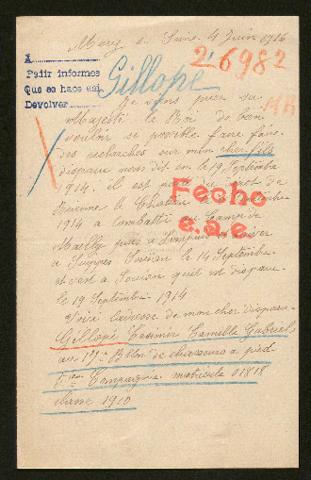 Mery s. Seine 4 Juin 1916
26982
A
Pedir informes
Que se hace así
Devolver
Gillopé
Je viens prier sa
Majesté le Roi de bien
vouloir se possible faire faire
des recherches sur mon cher fils
disparu nous dit-on le 19 Septembre
1914. il est parti du dépot de
1914 a combattu au Camp de
Mailly puis à
à Suippes Souain le 14 Septembre
et c'est a Souain qu'il est disparu
le 19 Septembre 1914
Fecho
e.a.e.
Voici l'adresse de mon cher disparu
Gillopé Casimir Camille Gabriel
au 17e Bllon de chasseurs a pied
Compagnie matricule 01818
classe 1910